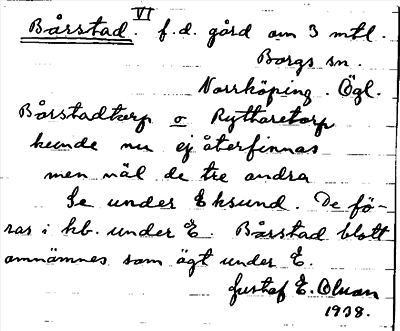 Bårstad. VI f.d. gård om 3 mtl.
Borgs sn.
Norrköping. Ögl.
Bårstadtorp o Ryttaretorp
kunde nu ej återfinnas
men väl de tre andra
Se under Eksund. De fö-
ras i kb. under E. Bårstad blott
omnämnes som ägt under E.
Gustaf E. Olsson
1938.